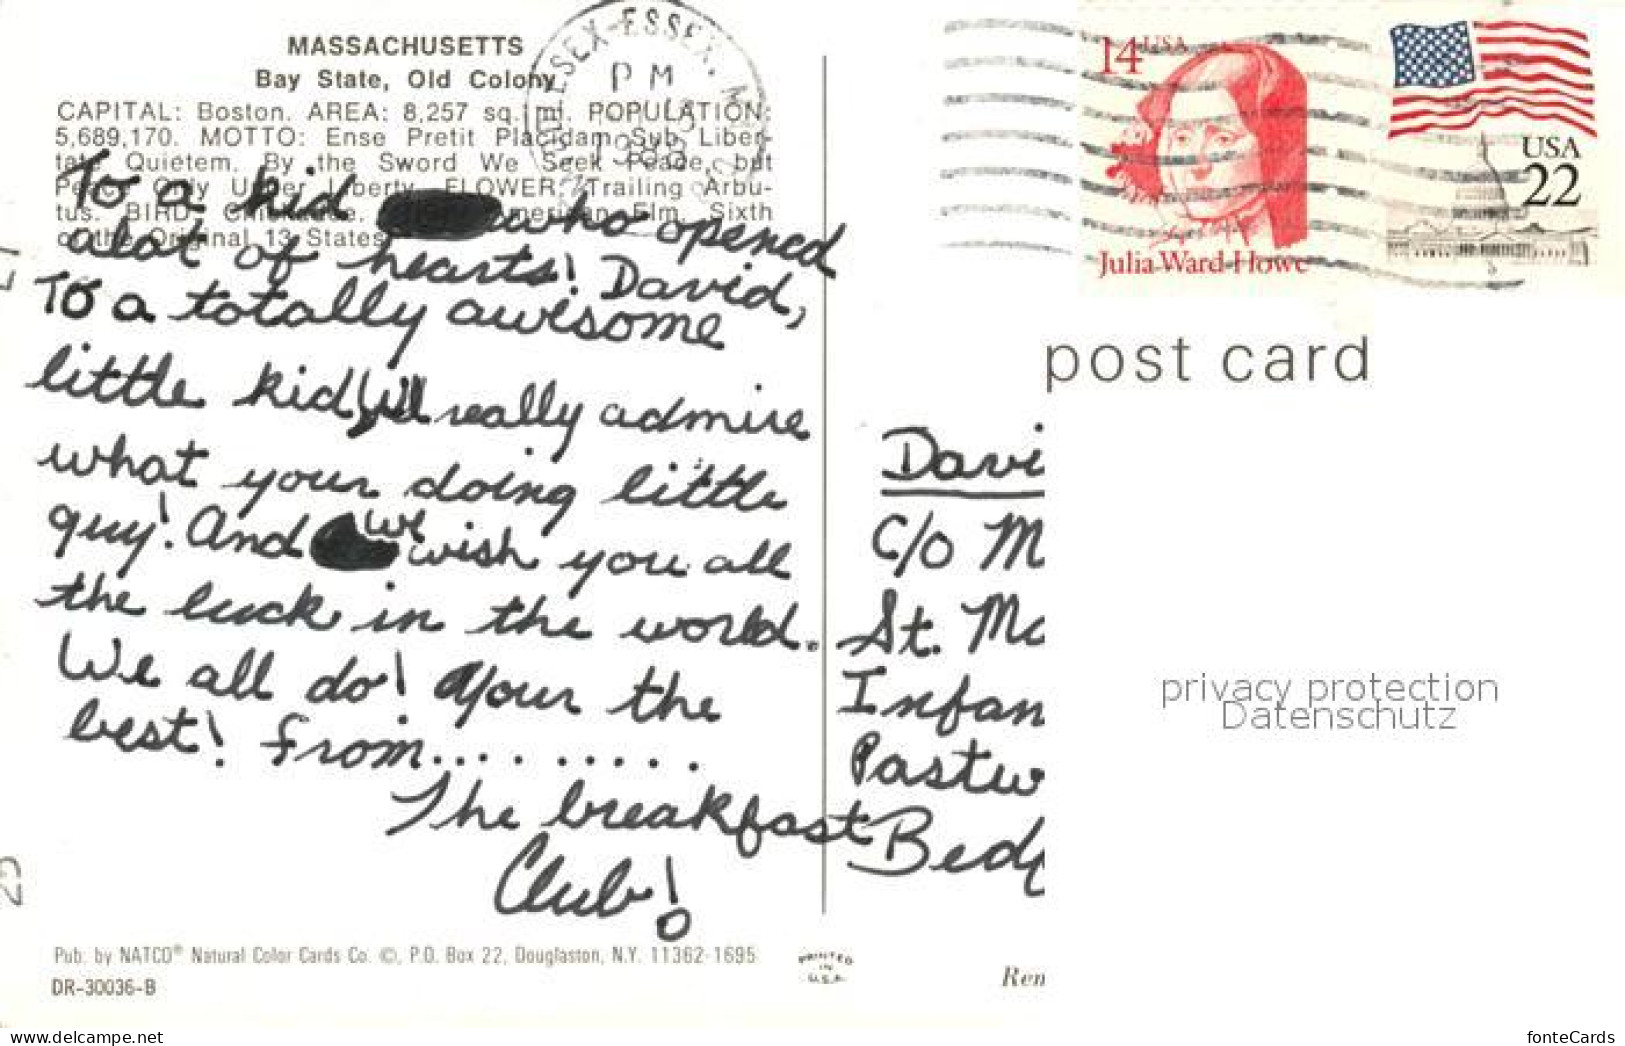 MASSACHUSETTS
Bay State, Old Colony
CAPITAL: Boston. AREA: 8,257 sq. mi. POPULATION:
5,689,170. MOTTO: Ense Pretit Placidam Sub Liber-
tate Quietem. By the Sword We Seek Peace, but
Peace Only Under Liberty. FLOWER: Trailing Arbu-
tus. BIRD: Chickadee. American Elm. Sixth
of the Original 13 States
To a kid who opened
alot of hearts! David,
To a totally awesome
little kid, I'll really admire
what your doing little
guy! And we wish you all
the luck in the world.
We all do! Your the
best! From.........
The breakfast
Club!
Pub. by NATCO® Natural Color Cards Co. ©, P.O. Box 22, Douglaston, N.Y. 11362-1695
DR-30036-B
PRINTED
IN
U.S.A.
ESSEX-ESSEX, M
PM
14 USA
Julia Ward Howe
USA
22
post card
Davi
C/O M
St. Mo
Infan
Pastu
Bedf
Ren
privacy protection
Datenschutz
www.ansichtskarten-center.de
fonteCards